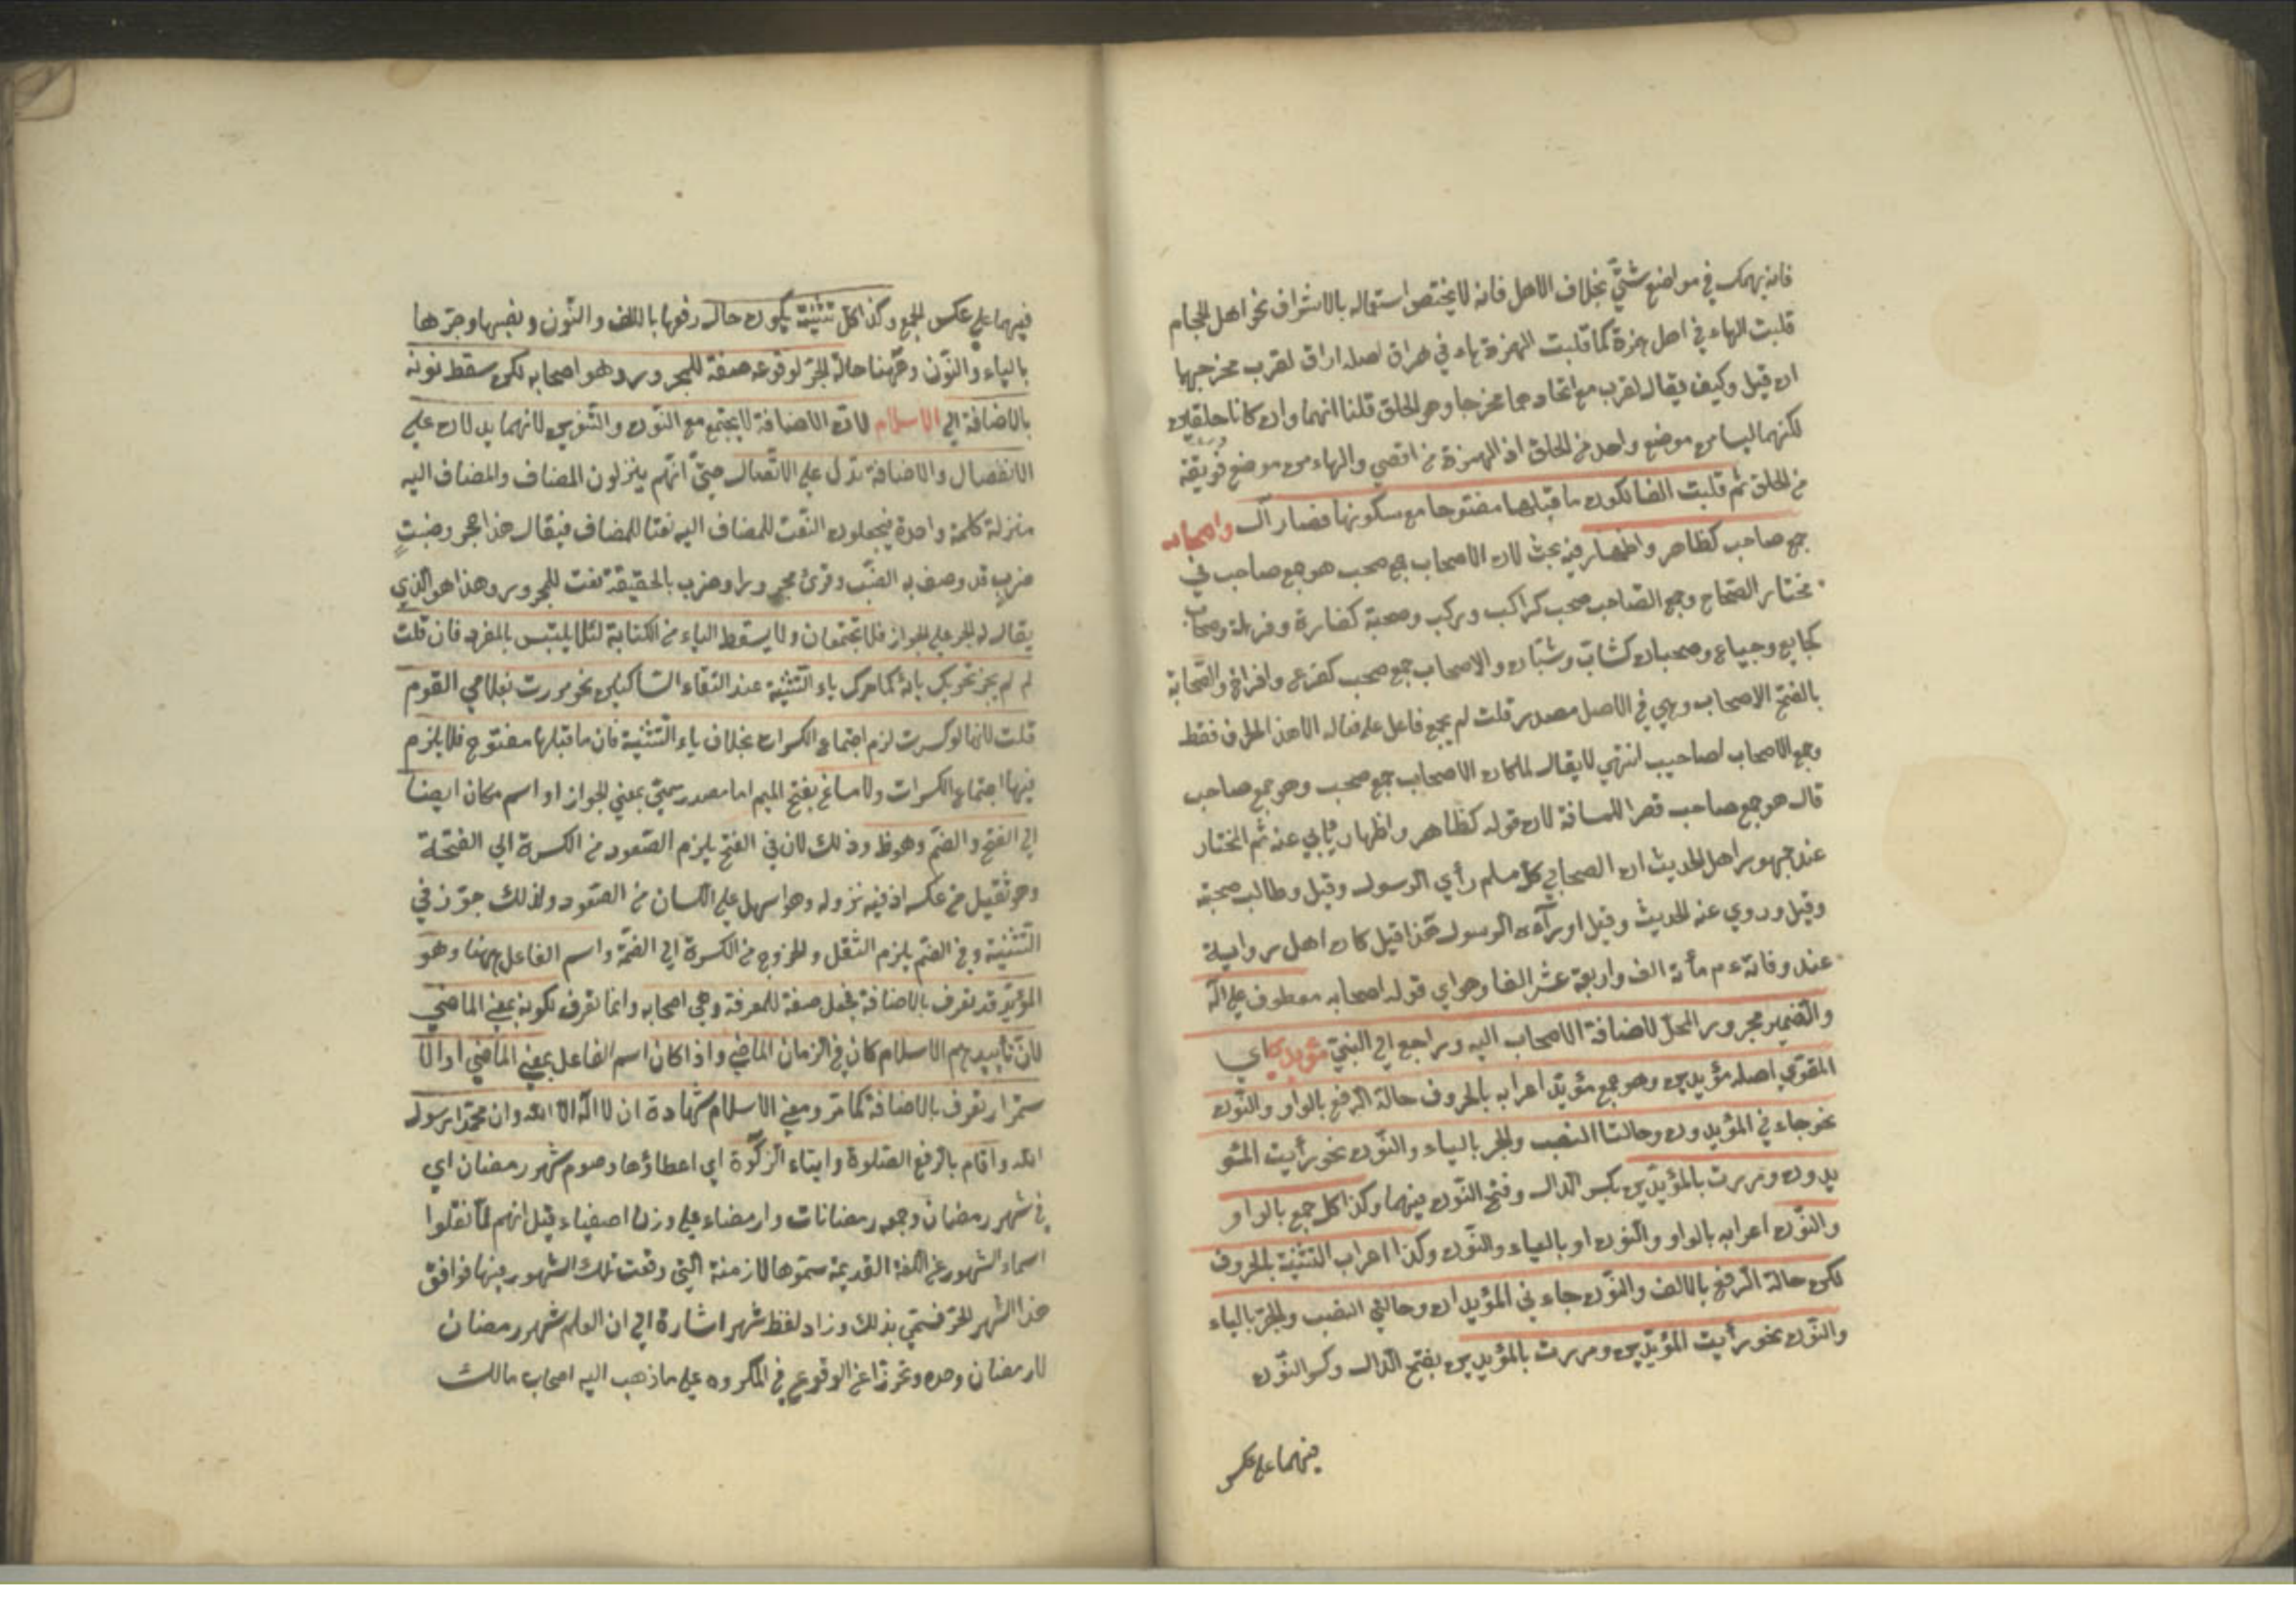 فانه يهمك في مواضع شتّي بخلاف الاهل فانه لا يختص استعماله بالاشراف نحو اهل الحجام
قلبت الهاء في اهل همزة كما قلبت الهمزة هاء في هراق اصله اراق لقرب مخرجيها
ان قيل وكيف يقال لقرب مع اتحادهما مخرجا وهو الحلق قلنا انهما وان كانا حلقيان
لكنهما ليسا من موضع واحد من الحلق اذ الهمزة من اقصي والهاء من موضع فويقه
من الحلق ثم قلبت الفا لكون ما قبلها مفتوحا مع سكونها فصار آل واصحابه
جمع صاحب كظاهر واظهار فيه بحث لان الاصحاب جمع صحب هو جمع صاحب في
مختار الصحاح وجمع الصاحب صحب كراكب وركب وصحبة كفارة وفرهة وصحاب
كجايع وجياع وصحبان كشابّ وشبّان والاصحاب جمع صحب كفرع وافراخ والصّحابة
بالفتح الاصحاب وهي في الاصل مصدر قلت لم يجمع فاعل على فعاله الا هذا الحرف فقط
وجمع الاصحاب اصاحيب انتهي لا يقال لما كان الاصحاب جمع صحب وهو جمع صاحب
قال هو جمع صاحب قصرا للمسافة لان قوله كظاهر واظهار يأبي عنه ثم المختار
عند جمهور اهل الحديث ان الصحابي كل مسلم رأي الرسول وقيل وطالب صحبته
وقيل وروي عنه الحديث وقيل او رآه الرسول هكذا قيل كان اهل رواية
عند وفاته ع م مأئة الف واربعة عشر الفا وهو اي قوله اصحابه معطوف علي آله
والضمير مجرور المحلّ لاضافة الاصحاب اليه وراجع الي النبيّ مؤيدي اي
المقوّي اصله مؤيدين وهو جمع مؤيّد اعرابه بالحروف حالة الرفع بالواو والنّون
نحو جاء في المؤيدون وحالتا النصب والجر بالياء والنّون نحو رأيت المئو
يدون ومررت بالمؤيدّين بكسر الدال وفتح النّون فيهما وكذا كل جمع بالواو
والنّون اعرابه بالواو والنون او بالياء والنّون وكذا اعراب التثنية بالحروف
لكن حالة الرفع بالالف والنّون جاء في المؤيدان وحالتي النصب والجرّ بالياء
والنّون نحو رأيت المؤيّدين ومررت بالمؤيدين بفتح الدال وكسر النّون
فيهما علي عكس
فيهما علي عكس الجمع وكذا كل تثنية يكون حال رفعها بالالف والنّون ونصبها وجرّها
بالياء والنّون وههنا حالة الجرّ لوقوعه صفة للمجرور وهو اصحابه لكن سقط نونه
بالاضافة الي الاسلام لان الاضافة لا يجتمع مع النّون والتّنوين لانهما يدلان علي
الانفصال والاضافة تدل علي الاتّصال حتيّ انّهم ينزلون المضاف والمضاف اليه
منزلة كلمة واحدة فيجعلون النّعت للمضاف اليه نعتا للمضاف فيقال هذا حجر ضبٍّ
خرب قد وصف به الضبّ وقرئ مجرورا وخرب بالحقيقة نعت للمجرور وهذا هو الذي
يقال له الجر علي الجوار فلا تجتمعان ولا يسقط الياء من الكتابة لئلا يلتبس بالمفرد فان قلت
لم لم يجز تحريك يائه كما حرك ياء التّثنية عند التقاء السّاكنين نحو مررت بغلامي القوم
قلت لانها لو كسرت لزم اجتماع الكسرات بخلاف ياء التّثنية فان ما قبلها مفتوح فلا يلزم
فيها اجتماع الكسرات ولا مساغ بفتح الميم اما مصدر ميميّ بمعني الجواز او اسم مكان ايضا
الي الفتح والضم وهو ظ وذلك لان في الفتح يلزم الصّعود من الكسرة الي الفتحة
وهو ثقيل من عكسه اذ فيه نزوله وهو اسهل علي اللسان من الصعود ولذلك جوّز في
التّثنية وفي الضم يلزم الثقل والخروج من الكسرة الي الضمّة واسم الفاعل ههنا وهو
المؤيّد قد تعرف بالاضافة بجعل صفة للمعرفة وهي اصحابه وانما تعرف لكونه بمعني الماضي
لانّ تأييدهم الاسلام كان في الزمان الماضي واذا كان اسم الفاعل بمعني الماضي او الا
ستمرار تعرف بالاضافة كما مرّ ومعني الاسلام شهادة ان لا اله الا الله وان محمّدا رسول
الله واقام بالرفع الصّلوة وايتاء الزكوة اي اعطاؤها وصوم شهر رمضان اي
في شهر رمضان وجمعه رمضانات وارمضاء علي وزن اصفياء قيل انهم لمّا نقلوا
اسماء الشهور عن اللغة القديمة سمّوها للازمنة التي وقعت تلك الشهور فيها فوافق
هذا الشهر الحرّ فسمّي بذلك وزاد لفظ شهر اشارة الي ان العلم شهر رمضان
لا رمضان وحده وتحرّزا عن الوقوع في المكروه علي ما ذهب اليه اصحاب مالك